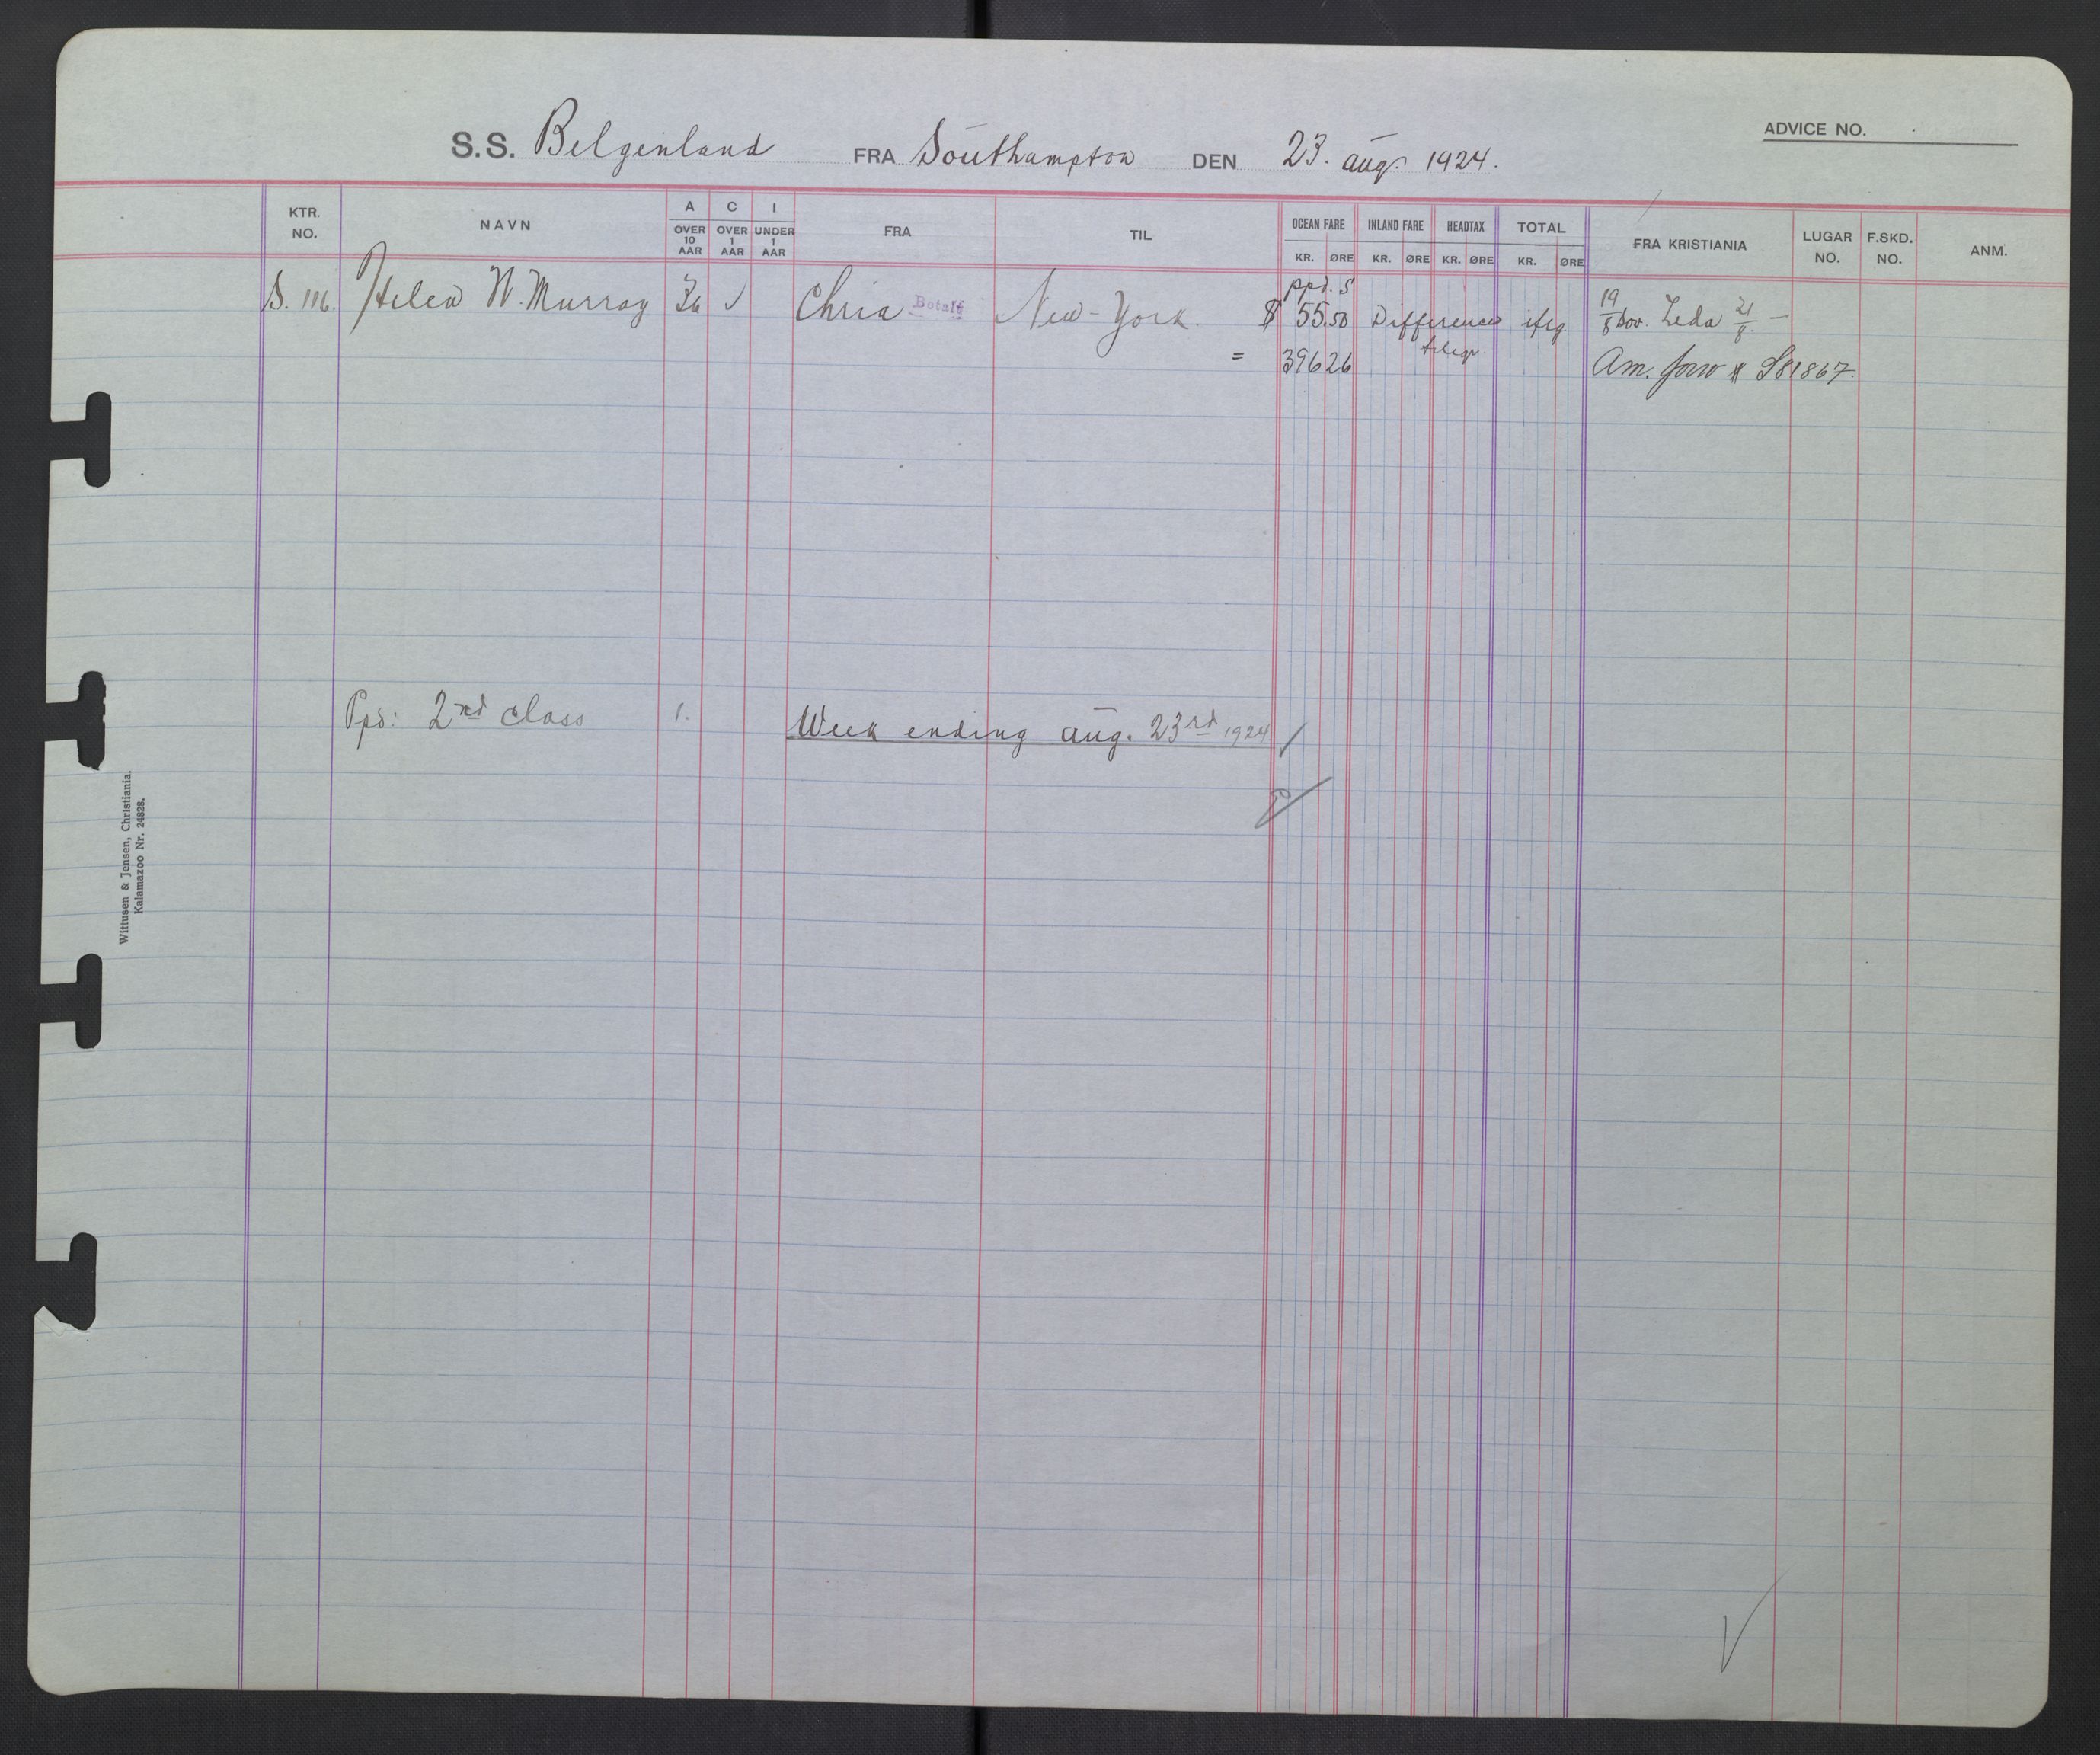 S.S. Belgenland FRA Southampton DEN 23. aug. 1924.
ADVICE NO.
KTR. NO. NAVN A OVER 10 AAR C OVER 1 AAR I UNDER 1 AAR FRA TIL OCEAN FARE KR. ØRE INLAND FARE KR. ØRE HEADTAX KR. ØRE TOTAL KR. ØRE FRA KRISTIANIA LUGAR NO. F.SKD. NO. ANM.
ppd. S
S. M. Helen W. Murray 36 ✓ Chria Betalt New-York. $ 55.50 Difference iflg. 19/8 Dov. Leda 21/8 –
telegr.
= 396 26 Am. forw # S81867.
Ppd: 2nd class 1. Week ending aug. 23rd 1924
Wittusen & Jensen, Christiania.
Kalamazoo Nr. 24828.